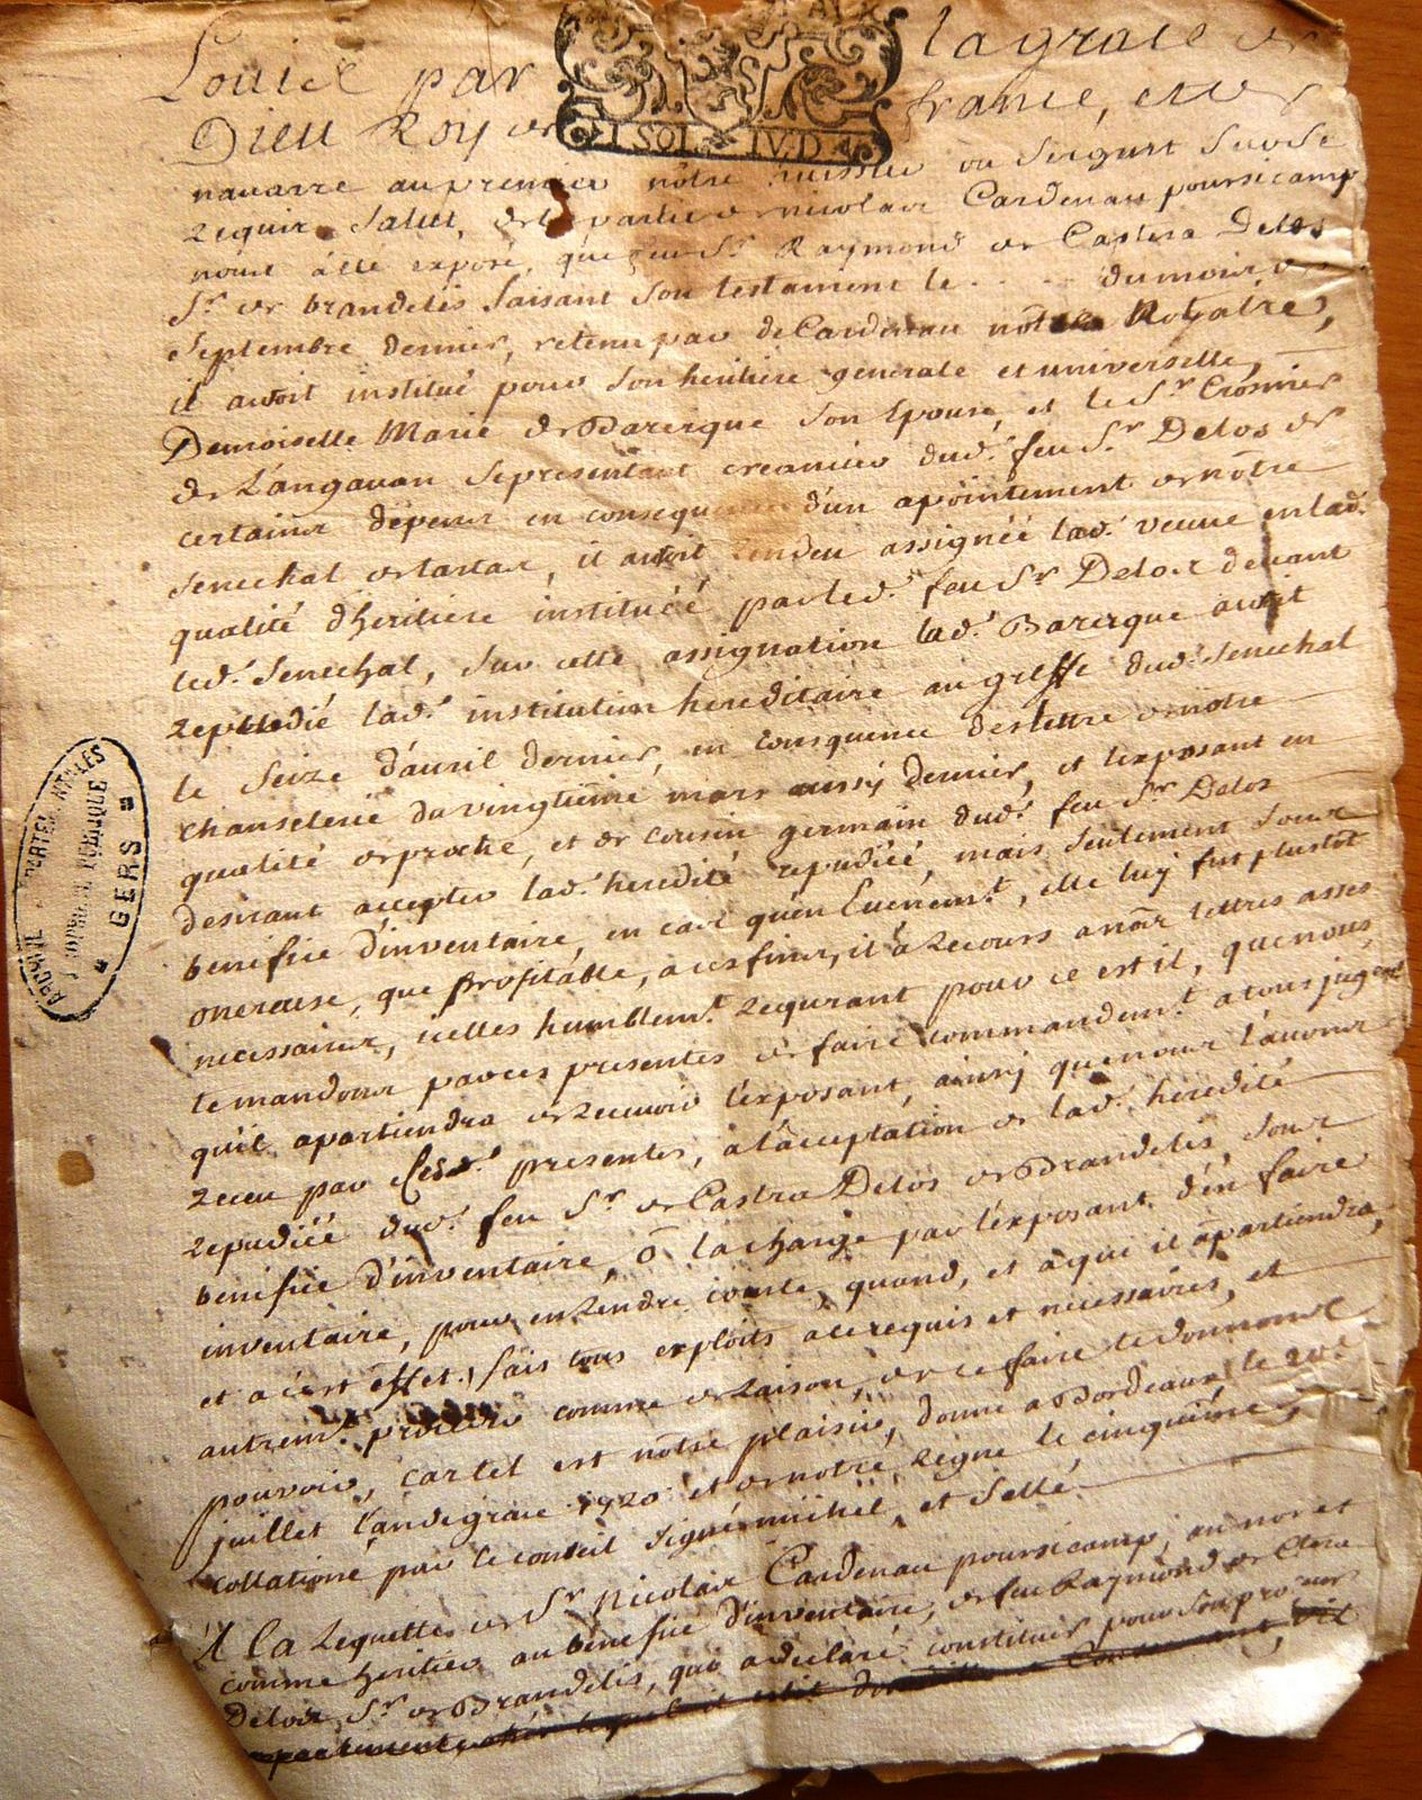 Louis par la grace de
Dieu Roy de france, et de
1 SOL IV D
navarre au premier nôtre huissier ou sergent sur ce
requis salut, de la partie de nicolas Cardenau poursicamp
nous a été exposé, que feu Sr. Raymond de Castera Delos
Sr. de brandelis faisant son testament le . . . du mois de
septembre dernier, retenu par deCardenau notre Notaire,
il avoit institué pour son heritiere generale et universelle,
Demoiselle Marie de Barerque son Epouse, et le Sr. Crosnier
de Langauan se presentant creancier dud. feu Sr. Delos de
certaines depens en consequence d'un apointement de nôtre
senechal de tartas, il avoit rendeu assignéé lad. veuve en lad.
qualité d'heritiere instituéé par led. feu Sr. Delos devant
led. Senechal, sur cette assignation lad. Barerque avoit
repudié lad. institution hereditaire au greffe dud. senechal
le seize d'avril dernier, en consequence des lettre de nôtre
chanselerie du vingtieme mars aussy dernier, et l'exposant en
qualité de proche, et de cousin germain dud. feu Sr. Delos
desirant accepter lad. heredité repudiéé, mais seulement sous
benefice d'inventaire, en cas qu'en Evenemt., elle luy fut plustôt
onereuse, que profitable, a ces fins, il a recours a nos lettres asses
necessaires, icelles humblemt. requrant pour ce est il, que nous
te mandons par ces presentes de faire commandemt. a tous juges
qu'il apartiendra de recevoir l'exposant, ainsy que nous l'avons
receu par cesd. presentes, a l'acceptation de lad. heredité
repudiéé dud. feu Sr. de Castra Delos de Brandelis, sous
benefice d'inventaire, ô la charge par l'exposant d'en faire
inventaire, pour en rendre conte, quand, et a qui il apartiendra,
et a cest effet, fais tous exploits a ce requis et necessaires, et
autremt. proceder comme de raison, de ce faire te donnons
pouvoir, car tel est nôtre plaisir, donné a Bordeaux le 20e.
juillet l'an de grace 1720 et de notre regne le cinquiéme,
collationé par le conseil signé michel, et sellé
A la requette de Sr. Nicolas Cardenau poursicamp, au nom et
comme heritier au benefice d'inventaire, de feu Raymond de Castra
Delos, Sr. de Brandelis, qui a declaré constituer pour son procureur
ARCHIVES DEPARTEMENTALES
PROPRIETE PUBLIQUE
GERS